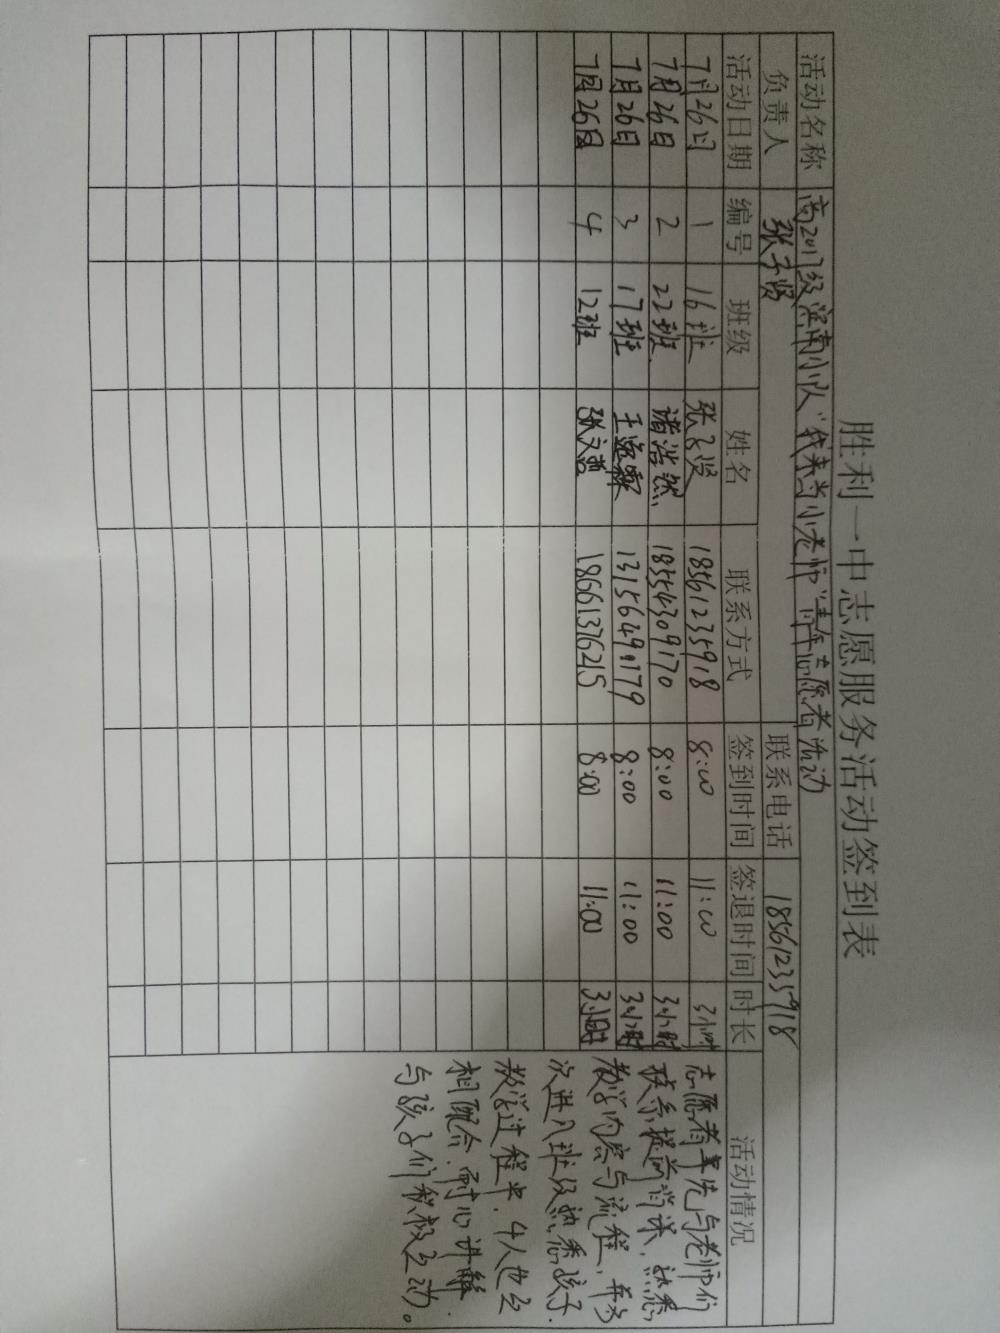 胜利一中志愿服务活动签到表
活动名称 高2017级 小队"我来当小老师"青年志愿者活动
负责人 张子贤 联系电话 18561235918
活动日期 编号 班级 姓名 联系方式 签到时间 签退时间 时长 活动情况
7月26日 1 16班 张子贤 18561235918 8:00 11:00 3小时
7月26日 2 22班 诸浩然 18554309170 8:00 11:00 3小时
7月26日 3 17班 13156491179 8:00 11:00 3小时
7月26日 4 12班 张文哲 18661376215 8:00 11:00 3小时
志愿者事先与老师们
联系提前背课,熟悉
教学内容与流程,再多
次进入班级熟悉孩子.
教学过程中,4人也互
相配合,耐心讲解,
与孩子们积极互动。